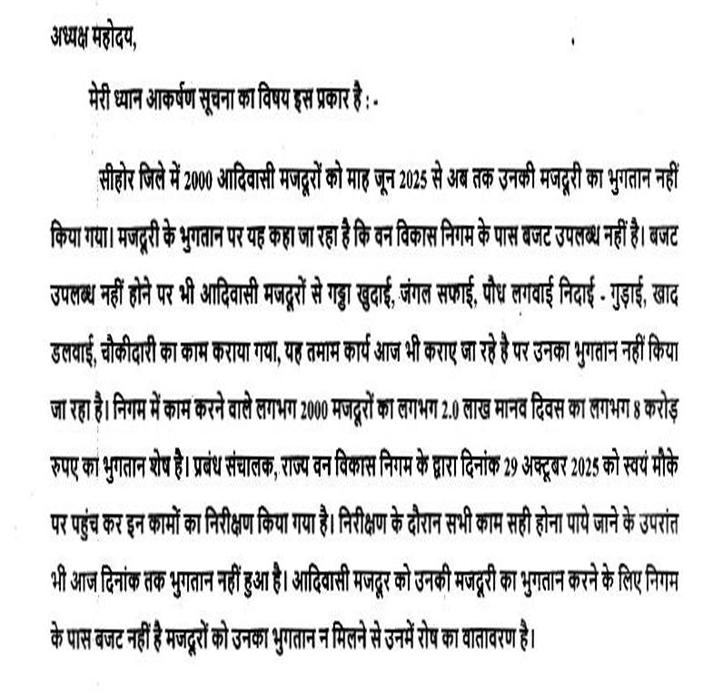 अध्यक्ष महोदय,
मेरी ध्यान आकर्षण सूचना का विषय इस प्रकार है : -
सीहोर जिले में 2000 आदिवासी मजदूरों को माह जून 2025 से अब तक उनकी मजदूरी का भुगतान नहीं
किया गया। मजदूरी के भुगतान पर यह कहा जा रहा है कि वन विकास निगम के पास बजट उपलब्ध नहीं है। बजट
उपलब्ध नहीं होने पर भी आदिवासी मजदूरों से गड्ढा खुदाई, जंगल सफाई, पौध लगवाई निदाई - गुड़ाई, खाद
डलवाई, चौकीदारी का काम कराया गया, यह तमाम कार्य आज भी कराए जा रहे है पर उनका भुगतान नहीं किया
जा रहा है। निगम में काम करने वाले लगभग 2000 मजदूरों का लगभग 2.0 लाख मानव दिवस का लगभग 8 करोड़
रुपए का भुगतान शेष है। प्रबंध संचालक, राज्य वन विकास निगम के द्वारा दिनांक 29 अक्टूबर 2025 को स्वयं मौके
पर पहुंच कर इन कामों का निरीक्षण किया गया है। निरीक्षण के दौरान सभी काम सही होना पाये जाने के उपरांत
भी आज दिनांक तक भुगतान नहीं हुआ है। आदिवासी मजदूर को उनकी मजदूरी का भुगतान करने के लिए निगम
के पास बजट नहीं है मजदूरों को उनका भुगतान न मिलने से उनमें रोष का वातावरण है।